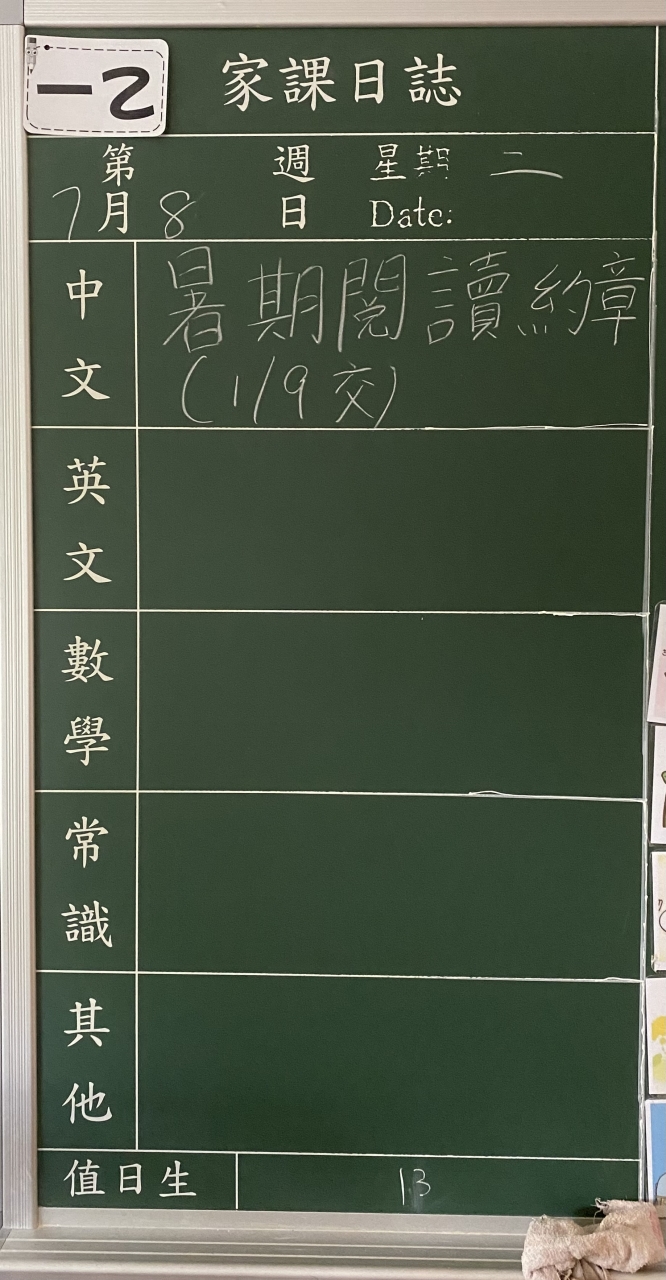 一乙
家課日誌
第 週 星期 二
7月 8 日 Date:
中文
暑期閱讀約章
(1/9交)
英文
數學
常識
其他
值日生 13